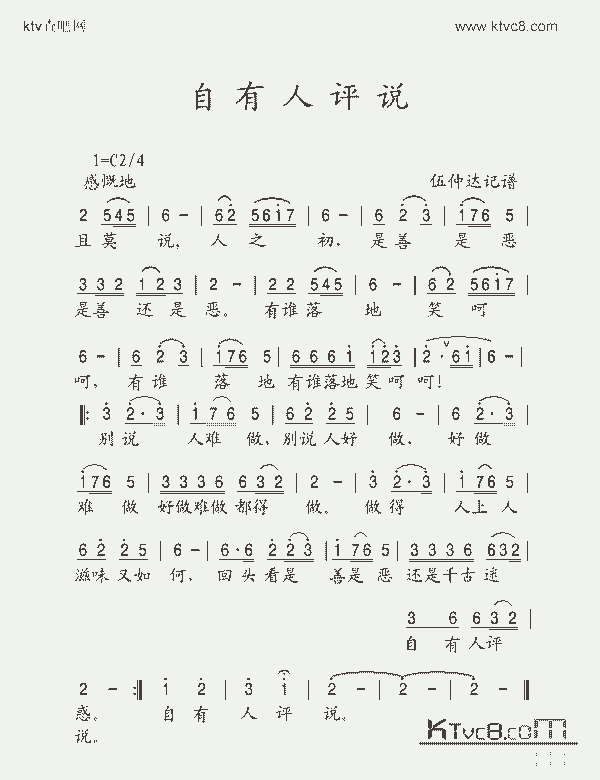 ktv六吧网 www.ktvc8.com
自有人评说
1=C2/4
感慨地 伍仲达记谱
2 545 | 6 - | 62 5617 | 6 - | 6 2 3 | 176 5 |
且莫 说, 人之 初, 是善 是 恶
3 3 2 1 2 3 | 2 - | 2 2 545 | 6 - | 6 2 5617 |
是善 还是恶。 有谁落 地 笑 呵
6 - | 6 2 3 | 176 5 | 6 6 6 1 123 | 2· 61 | 6 - |
呵, 有谁 落 地 有谁落地笑呵 呵!
‖: 3 2·3 | 1 7 6 5 | 6 2 2 5 | 6 - | 6 2·3 |
别说 人难 做, 别说人好 做, 好做
176 5 | 3 3 3 6 6 3 2 | 2 - | 3 2·3 | 1 76 5 |
难 做 好做难做都得 做。 做得 人上人
6 2 2 5 | 6 - | 6·6 2 2 3 | 1 76 5 | 3 3 3 6 632 |
滋味又如 何, 回头看是 善是恶 还是千古迷
3 6 6 3 2 |
自 有人评
2 - :‖ 1 2 | 3 1 | 2 - | 2 - | 2 - ‖
惑。 自有 人评 说。
说。
KTvc8.com